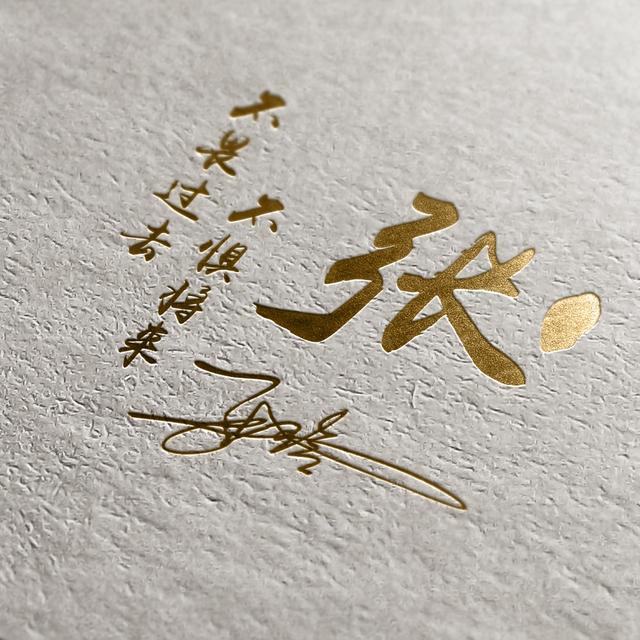 张
不畏过去
不惧将来